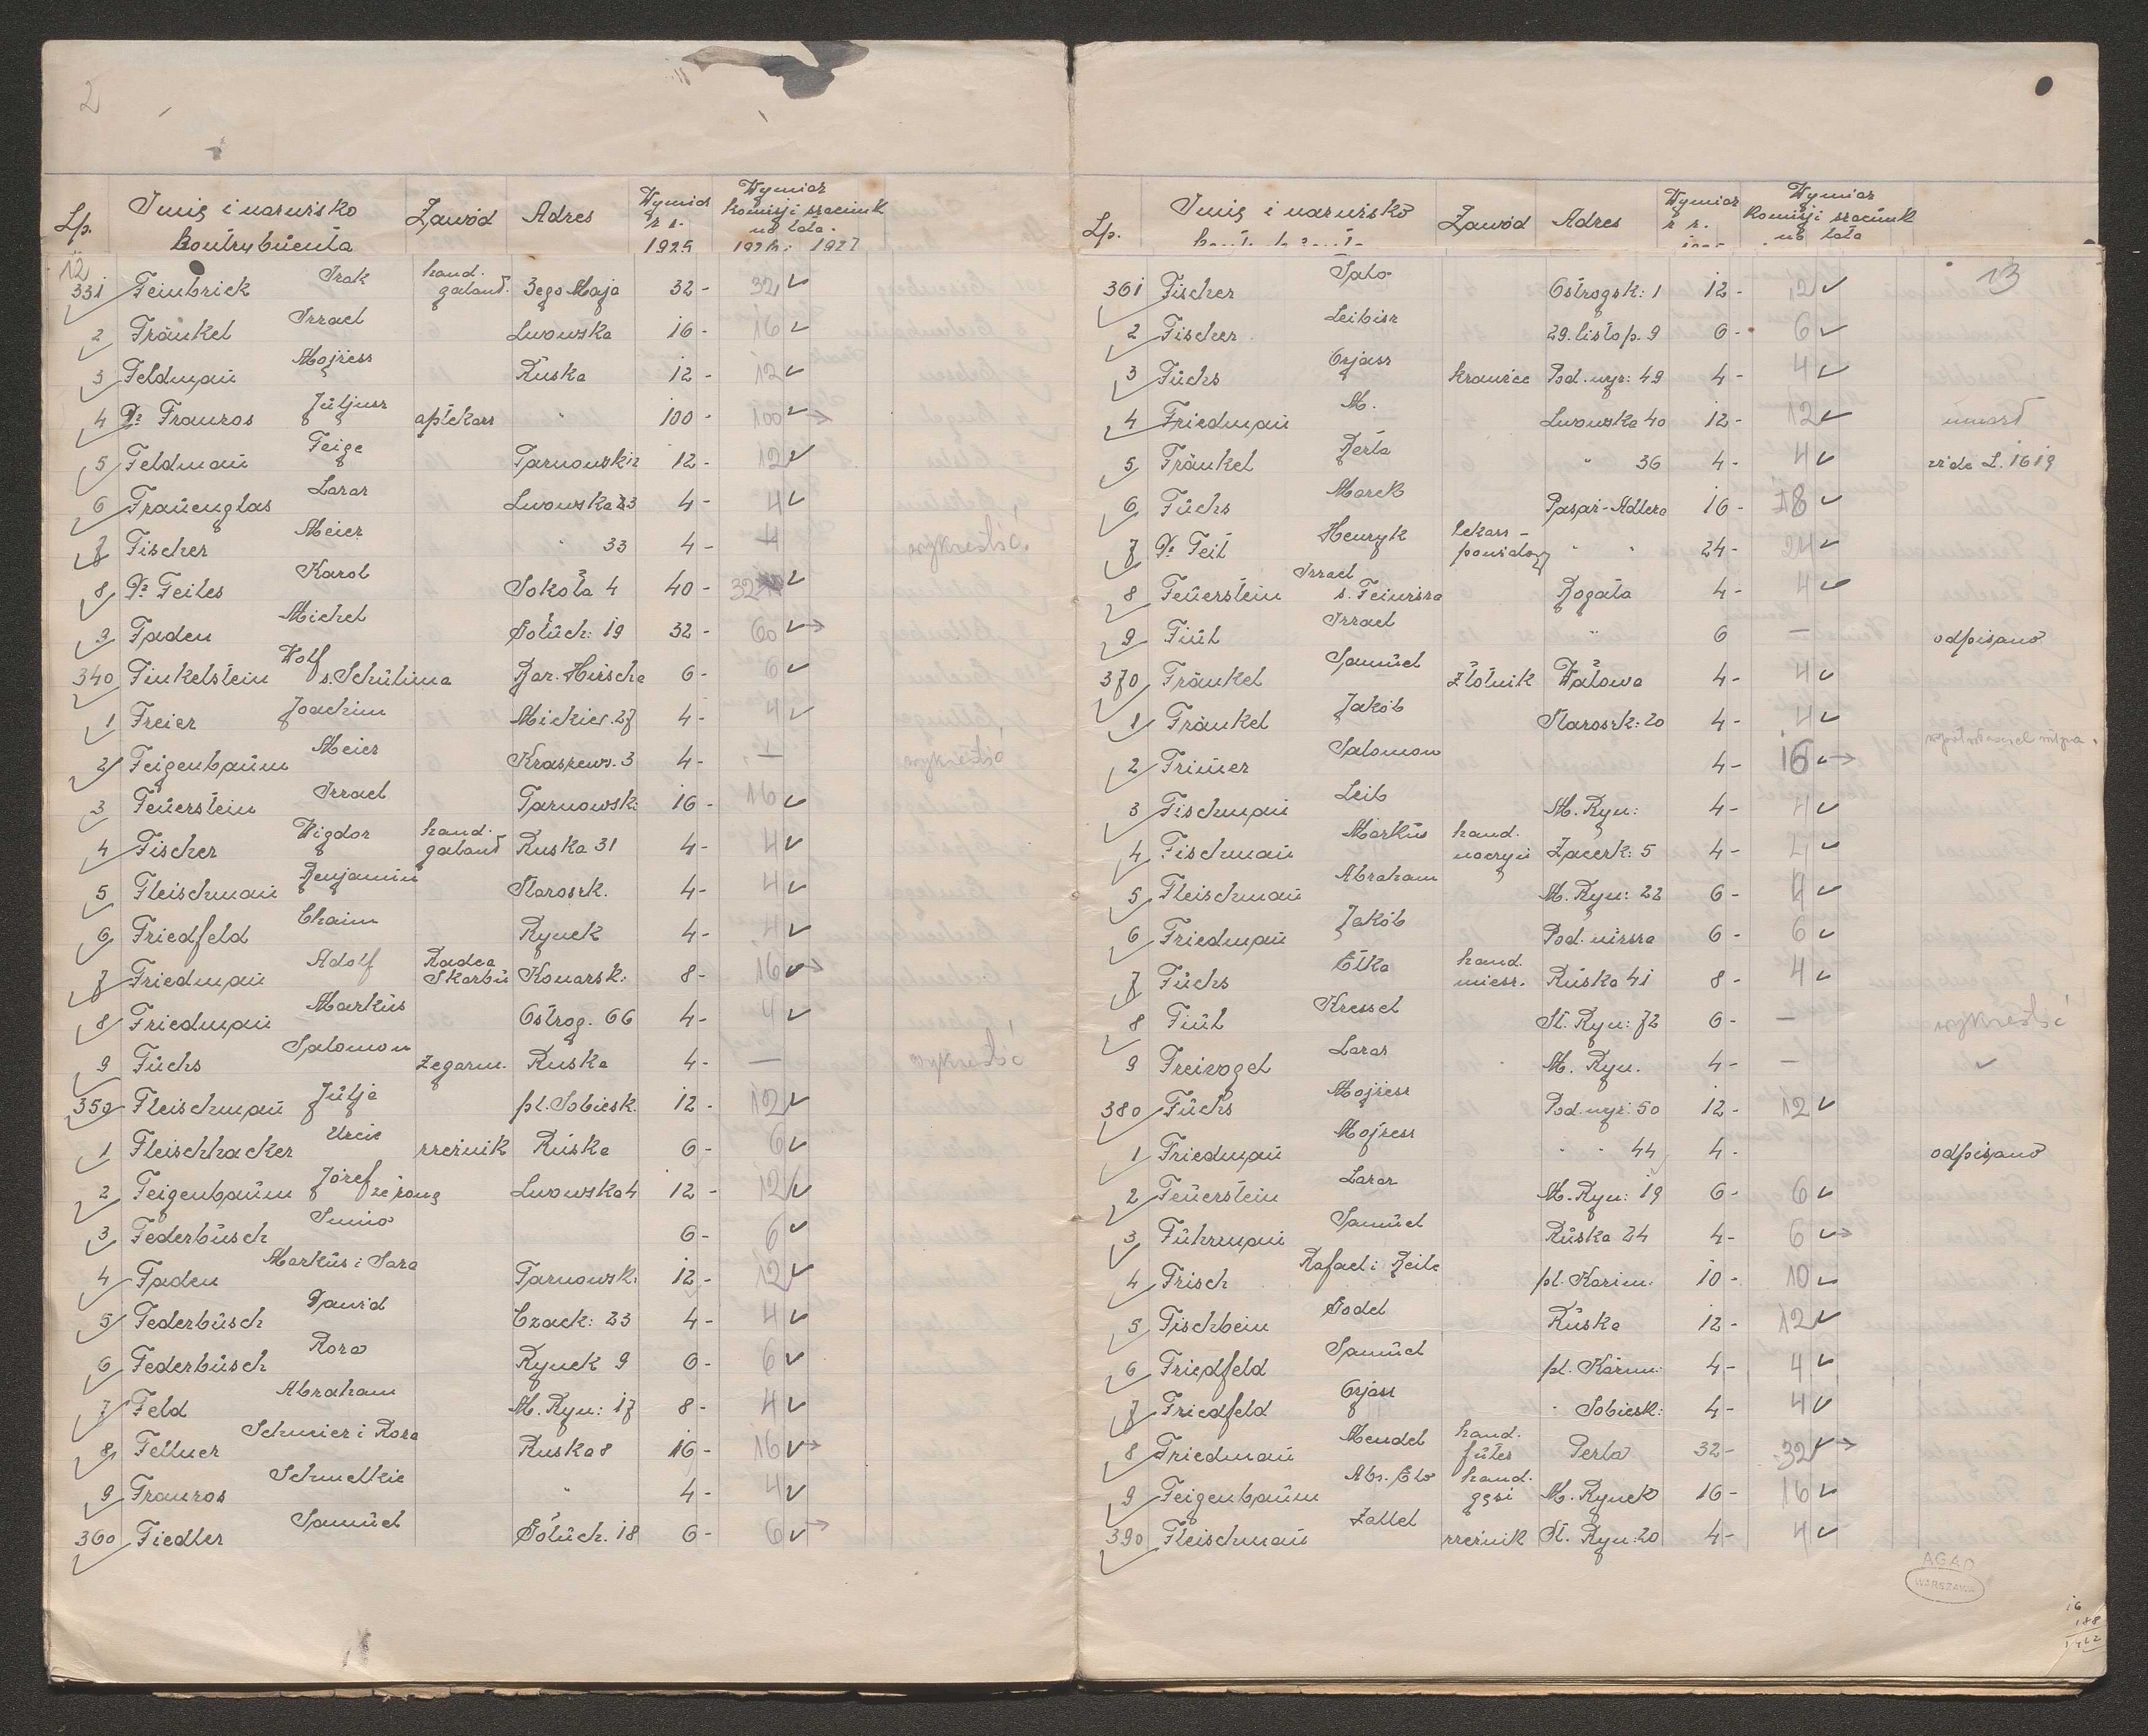 2
Lp. Imię i nazwisko kontrybuenta Zawód Adres Wymiar z r. 1925 Wymiar komisji szacunk na lata 1926 i 1927
12
331 Feinbrick Izak hand. galant. 3ego Maja 32 - 32
2 Fränkel Izrael Lwowska 16 - 16
3 Feldman Mojżesz Ruska 12 - 12
4 Dr Franzos Juljusz aptekarz " 100 - 100
5 Feldman Feige Tarnowski 12 - 12
6 Frauenglas Lazar Lwowska 33 4 - 4
7 Fischer Meier " 33 4 - 4 wykreślić.
8 Dr Feiles Karol Sokoła 4 40 - 32
9 Faden Michel Gołuch: 19 32 - 60
340 Finkelstein Wolf s. Schulima Bar. Hirscha 6 - 6
1 Freier Joachim Mickiew. 27 4 - 4
2 Feigenbaum Meier Kraszews. 3 4 - — wykreślić
3 Feuerstein Izrael Tarnowsk: 16 - 16
4 Fischer Wigdor hand. galant Ruska 31 4 - 4
5 Fleischman Benjamin Starosrk. 4 - 4
6 Friedfeld Chaim Rynek 4 - 4
7 Friedman Adolf Radca Skarbu Konarsk: 8 - 16
8 Friedman Markus Ostrog. 66 4 - 4
9 Fuchs Salomon zegarm. Ruska 4 - — wykreślić
350 Fleischman Julja pl. Sobiesk. 12 - 12
1 Fleischhacker Urcie rzeźnik Ruska 6 - 6
2 Feigenbaum Józef ze żoną Lwowska 4 12 - 12
3 Federbusch Simio 6 - 6
4 Faden Markus i Sara Tarnowsk: 12 - 12
5 Federbusch Dawid Czack: 23 4 - 4
6 Federbusch Roza Rynek 9 6 - 6
7 Feld Abraham M. Ryn: 17 8 - 4
8 Fellner Schmier i Roza Ruska 8 16 - 16
9 Franzos Schmelkie " 4 - 4
360 Fiedler Samuel Gołuch. 18 6 - 6
Lp. Imię i nazwisko Zawód Adres Wymiar z r. Wymiar Komisji szacunk na lata
13
361 Fischer Salo Ostrogsk: 1 12 - 12
2 Fischer Leibisz 29. listop. 9 6 - 6
3 Fuchs Ozjasz krawiec Pod. wyż: 49 4 - 4
4 Friedman M. Lwowska 40 12 - 12 umarł
5 Fränkel Berta " 36 4 - 4 vide L. 1619
6 Fuchs Marek Pasaż-Adlera 16 - 18
7 Dr Feil Henryk lekarz - powiatowy " " 24 - 24
8 Feuerstein Izrael s. Feiwisza Rogata 4 - 4
9 Fiul Izrael " 6 — odpisano
370 Fränkel Samuel złotnik Wałowa 4 - 4
1 Fränkel Jakób Starosrk: 20 4 - 4
2 Frimer Salomon 4 - 16
3 Fischman Leib M. Ryn: 4 - 4
4 Fischman Markus hand. naczyń Zacerk: 5 4 - 4
5 Fleischman Abraham M. Ryn: 22 6 - 4
6 Friedman Jakób Pod. niższa 6 - 6
7 Fuchs Elka hand. miesz. Ruska 41 8 - 4
8 Fiul Kressel St. Ryn: 72 6 - — wykreślić
9 Freivogel Lazar M. Ryn. 4 - —
380 Fuchs Mojżesz Pod. wyż: 50 12 - 12
1 Friedman Mojżesz " " 44 4 - odpisano
2 Feuerstein Lazar M. Ryn: 19 6 - 6
3 Fuhrman Samuel Ruska 24 4 - 6
4 Frisch Rafael i Beile pl. Kazim. 10 - 10
5 Fischbein Godel Ruska 12 - 12
6 Friedfeld Samuel pl. Kazim: 4 - 4
7 Friedfeld Ozjasz " Sobiesk: 4 - 4
8 Friedman Mendel hand. futer Perla 32 - 32
9 Feigenbaum Abr. Elo hand. gęsi M. Rynek 16 - 16
390 Fleischman Zallel rzeźnik St. Ryn: 20 4 - 4
AGAD
WARSZAWA
16
188